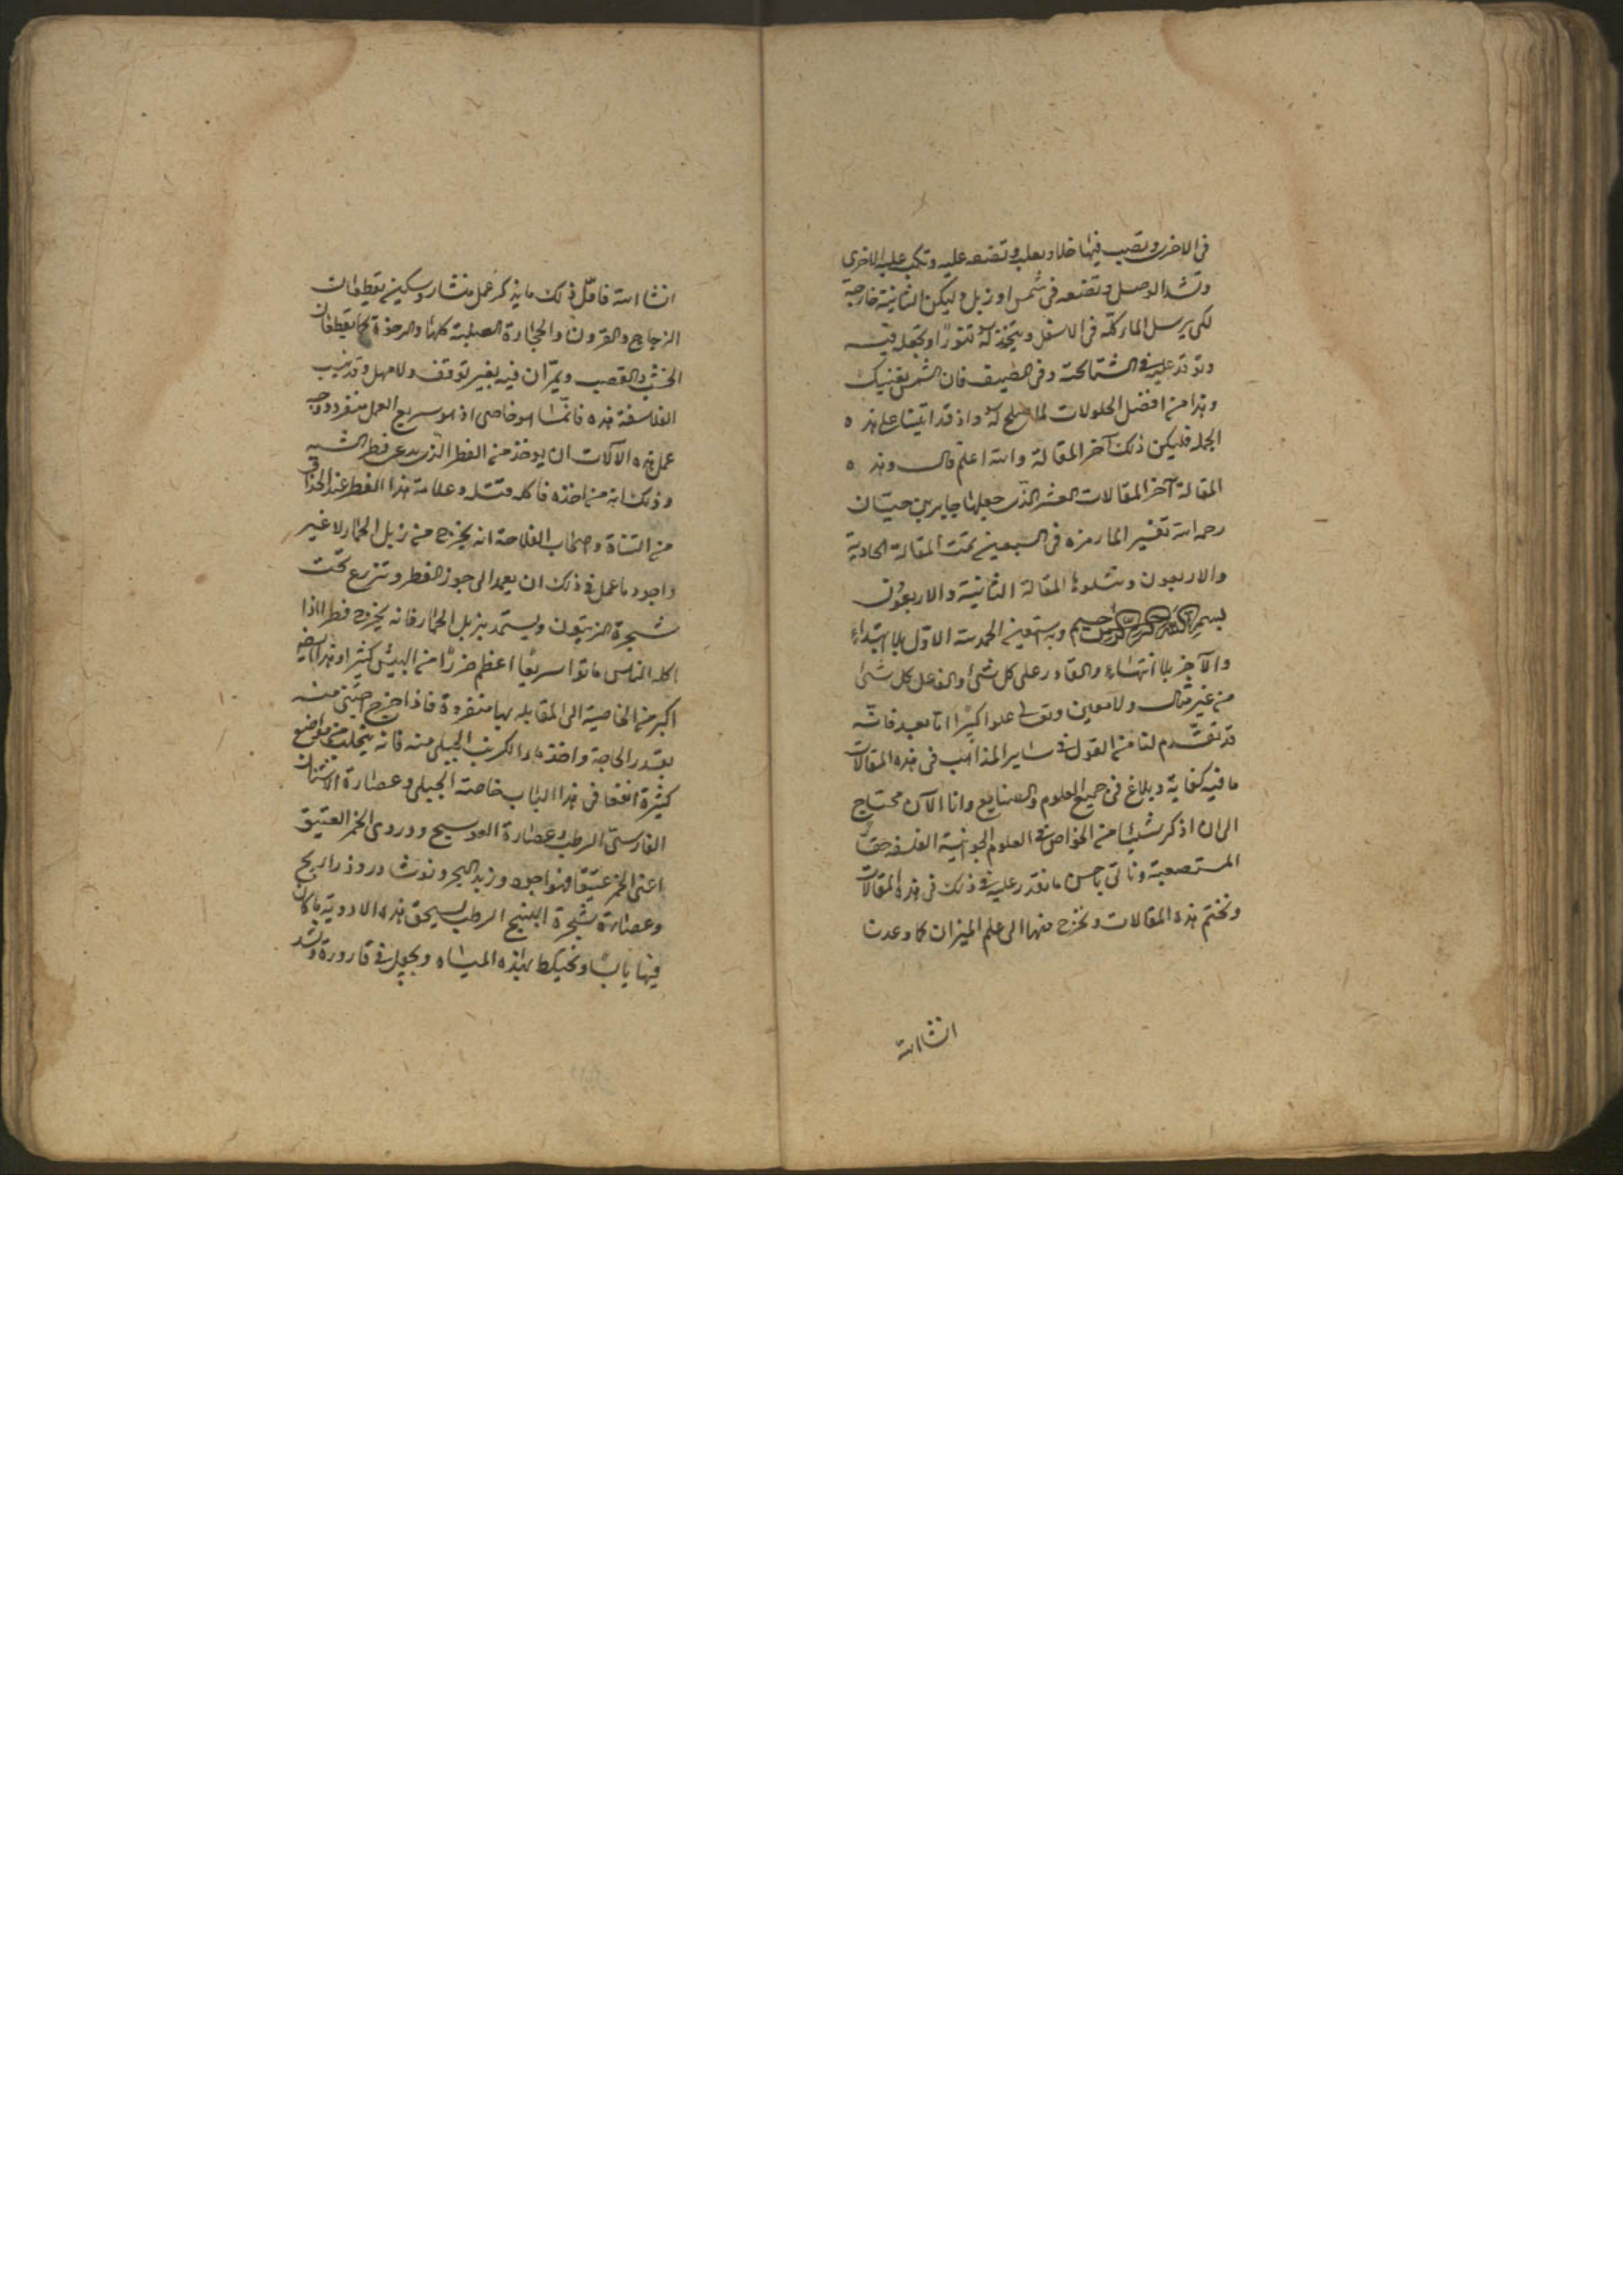 في الاخرى وتصب فيها خلا وبعلب وتضعه عليه وتكب عليه الاخرى
وتشد الوصل وتضعه في شمس او زبل وليكن الثانية خارجة
لكي يرسل الماء كله في الاسفل ويتخذ له تنورا وتجعله فيه
وتوقد عليه في الشتا تحته وفي الصيف فان الشمس يغنيك
وهذا من افضل الحلولات لما يصلح له واذ قد اتينا على هذه
الجملة فليكن ذلك آخر المقالة والله اعلم قال وهذه
المقالة آخر المقالات العشر الذي جعلها جابر بن حيان
رحمه الله تفسير الما رمزه في السبعين تمت المقالة الحادية
والاربعون ويتلوها المقالة الثانية والاربعون
بسم الله الرحمن الرحيم وبه نستعين الحمد لله الاول بلا ابتداء
والآخر بلا انتهاء والقادر على كل شئ والفاعل كل شئ
من غير مثال ولا معين وتعالى علوا كبيرا اما بعد فانه
قد تقدم لنا من القول في ساير المذاهب في هذه المقالات
ما فيه كفاية وبلاغ في جميع العلوم والصنايع وانا الآن محتاج
الى ان اذكر شيئا من الخواص في العلوم الجوانية الفلسفية حقا
المستصعبة وناتي باحسن ما نقدر عليه في ذلك في هذه المقالات
ونختم هذه المقالات ونخرج منها الى علم الميزان كما وعدنا
انشا الله
انشا الله فاول ذلك ما يذكر عمل منشار وسكين يقطعان
الزجاج والقرون والحجارة الصلبة كلها والرخوة كما يقطعان
الخشب والقصب ويمران فيه بغير توقف ولا مهل وقد نسب
الفلاسفة هذه فانما هو خاصي اذ هو سريع العمل منفرد ووجه
عمل هذه الآلات ان يوخذ من الفطر الذي يدعى فطر الشبه
وذلك انه من اخذه فاكله قتله وعلامة هذا الفطر عند الحذاق
من التناة واصحاب الفلاحة انه يخرج من زبل الحمار لا غير
واجود ما عمل في ذلك ان يعمد الى جوز الفطر وتزرع تحت
شجرة الزيتون ويستمد بزبل الحمار فانه يخرج فطرا اذا
اكله الناس ماتوا سريعا اعظم ضررا من البيش كثيرا وهذا ايضا
اكبر من الخاصية الى المقابلة بها منفردة فاذا خرج اجتني منه
بقدر الحاجة واخذ ماء الكرنب الجبلي منه فانه يتحلب من مواضع
كثيرة انفعا في هذا الباب خاصة الجبلي وعصارة الاشنان
الفارسي الرطب وعصارة العوسج ودردي الخمر العتيق
اعني الخمر عتيقا فهو اجود وزبد البحر ونوشادر وذراريح
وعصارة شجرة البنج الرطب يسحق هذه الادوية ما كان
فيها يابسا ويخيلط بهذه المياه ويجعل في قارورة وتشد